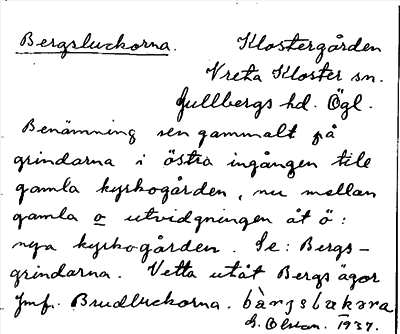 Bergsluckorna. Klostergården
Vreta Kloster sn.
Gullbergs hd. Ögl.
Benämning sen gammalt på
grindarna i östra ingången till
gamla kyrkogården, nu mellan
gamla o utvidgningen åt ö:
nya kyrkogården. Se: Bergs-
grindarna. Vetta utåt Bergs ägor
Jmf. Brudluckorna. bàrjslukəra
G. Olsson. 1937.